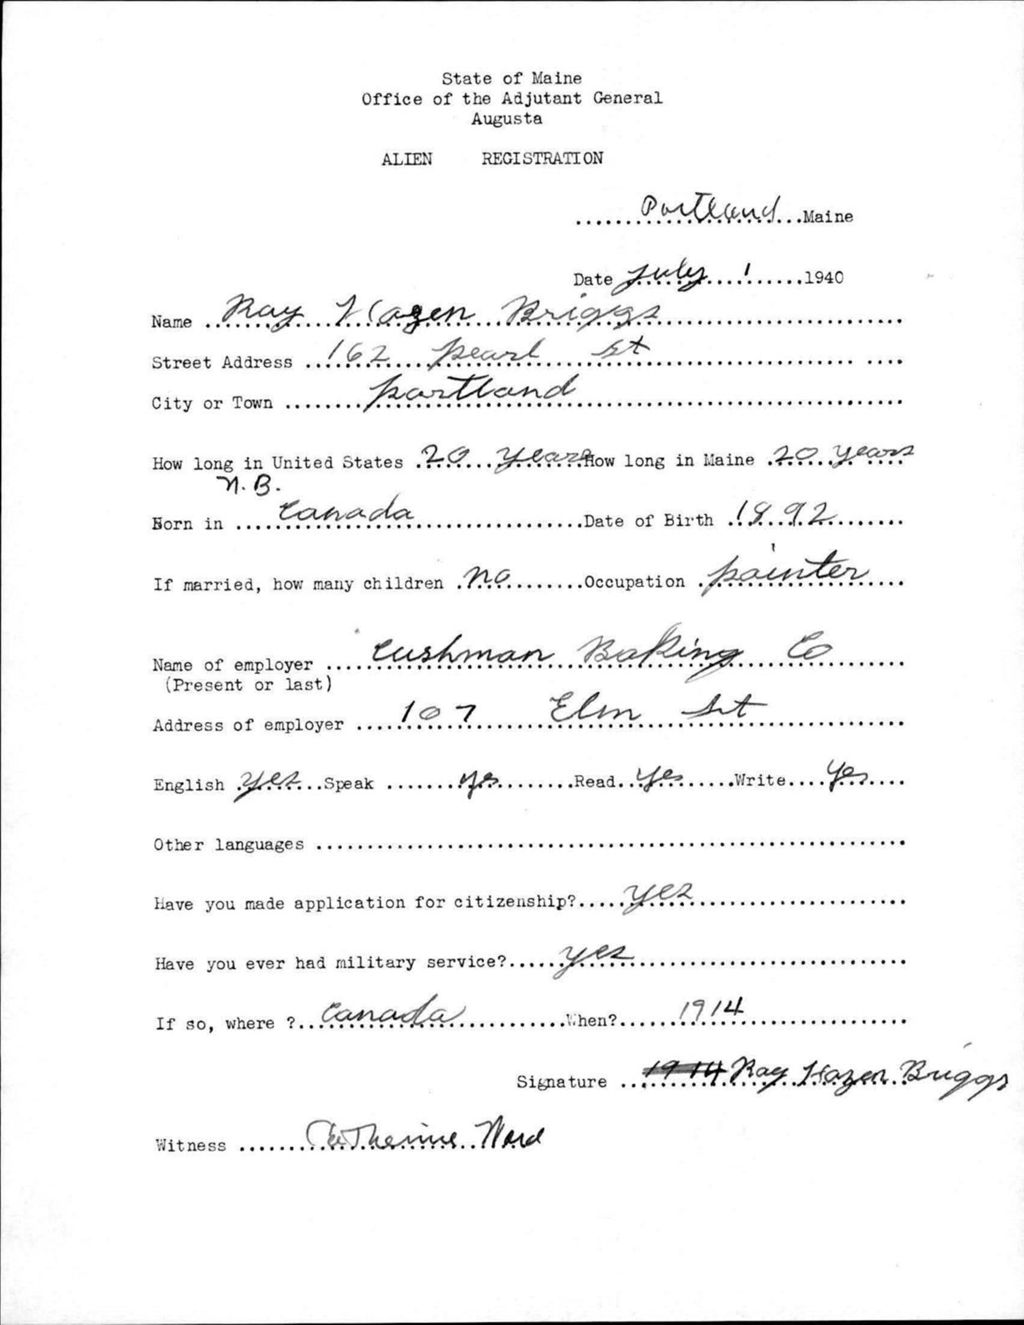 State of Maine
Office of the Adjutant General
Augusta
ALIEN REGISTRATION
Portland Maine
Date July 1 1940
Name Ray Hazen Briggs
Street Address 162 Pearl St
City or Town Portland
How long in United States 20 years How long in Maine 20 years
N.B.
Born in Canada Date of Birth 1892
If married, how many children no Occupation painter
Name of employer Cushman Baking Co
(Present or last)
Address of employer 107 Elm St
English yes Speak yes Read yes Write yes
Other languages
Have you made application for citizenship? yes
Have you ever had military service? yes
If so, where ? Canada When? 1914
Signature 1914 Ray Hazen Briggs
Witness Catherine Ward